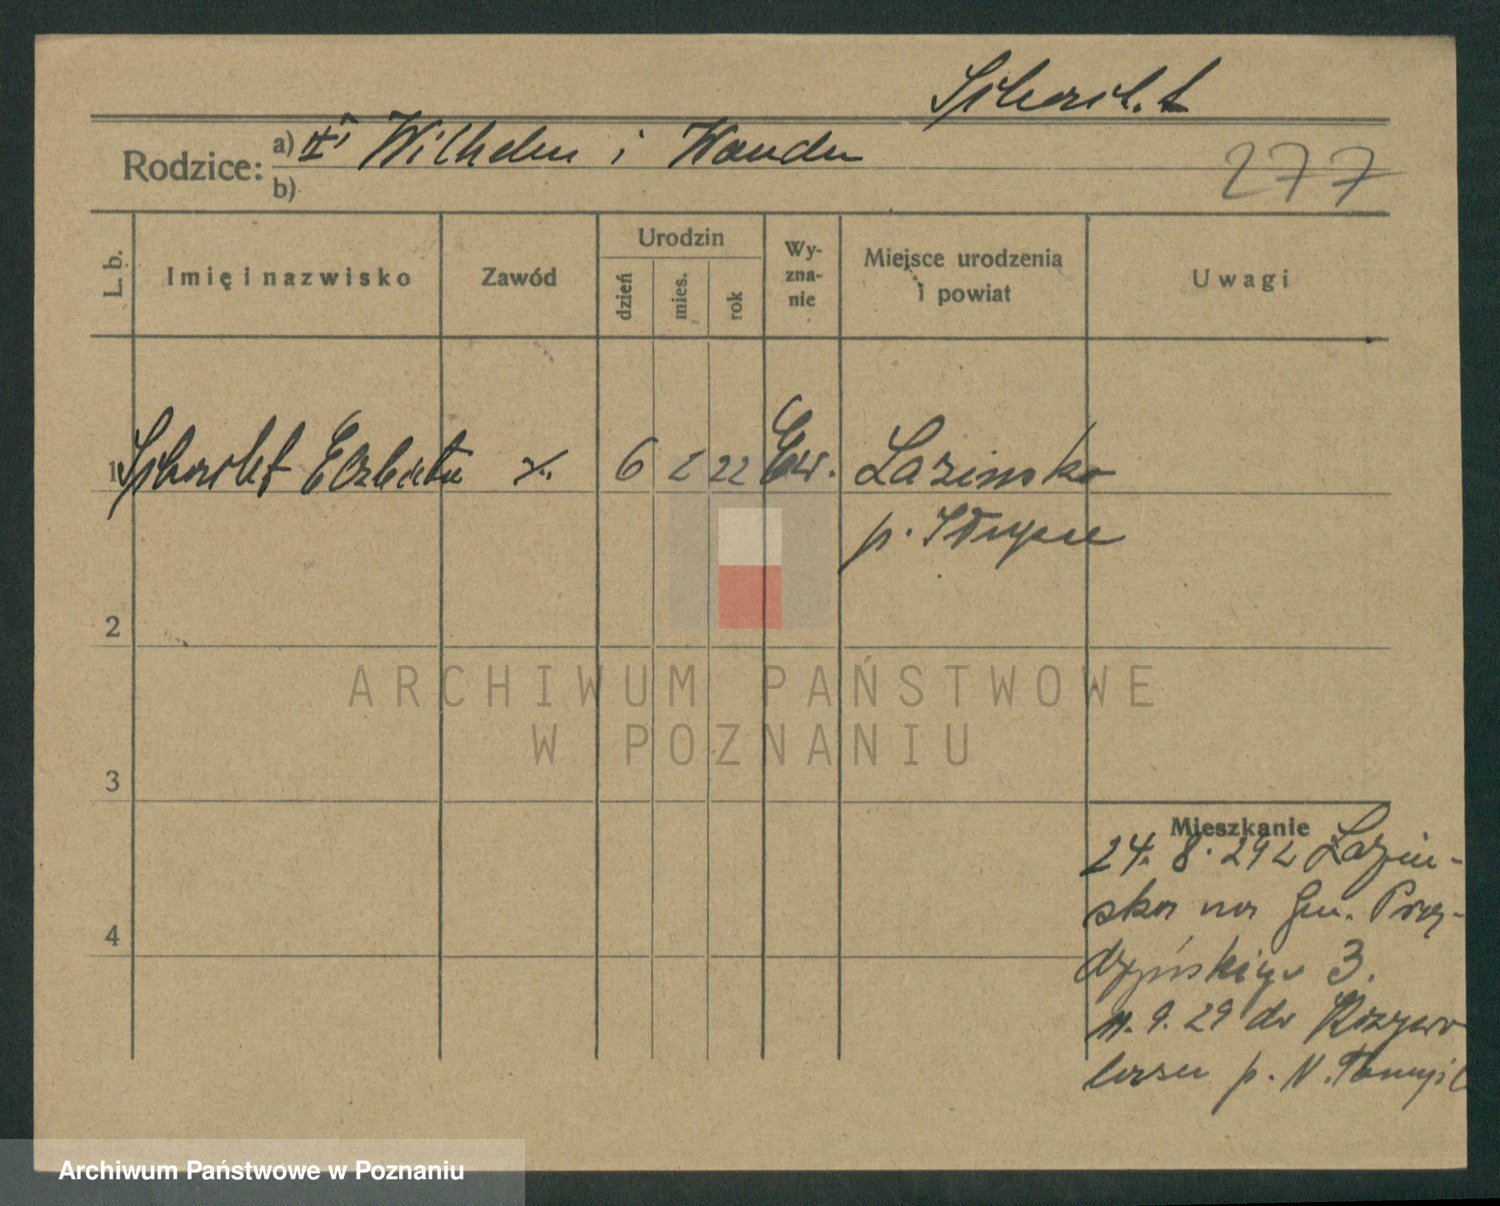 Schacht
Rodzice: a) II Wilhelm i Wanda
b)
277
L. b. Imię i nazwisko Zawód Urodzin dzień mies. rok Wyznanie Miejsce urodzenia i powiat Uwagi
1 Schacht Elżbieta 6 2 22 Ew. Lazinska
p. Słupce
2
3
4
Mieszkanie
24. 8. 29 z Lazin-
ska na Gen. Prą-
dzyńskiego 3.
9. 29 do
p. N. Tomyśl
ARCHIWUM PAŃSTWOWE
W POZNANIU
Archiwum Państwowe w Poznaniu